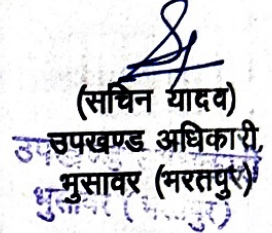 (सचिन यादव)
उपखण्ड अधिकारी,
भुसावर (भरतपुर)